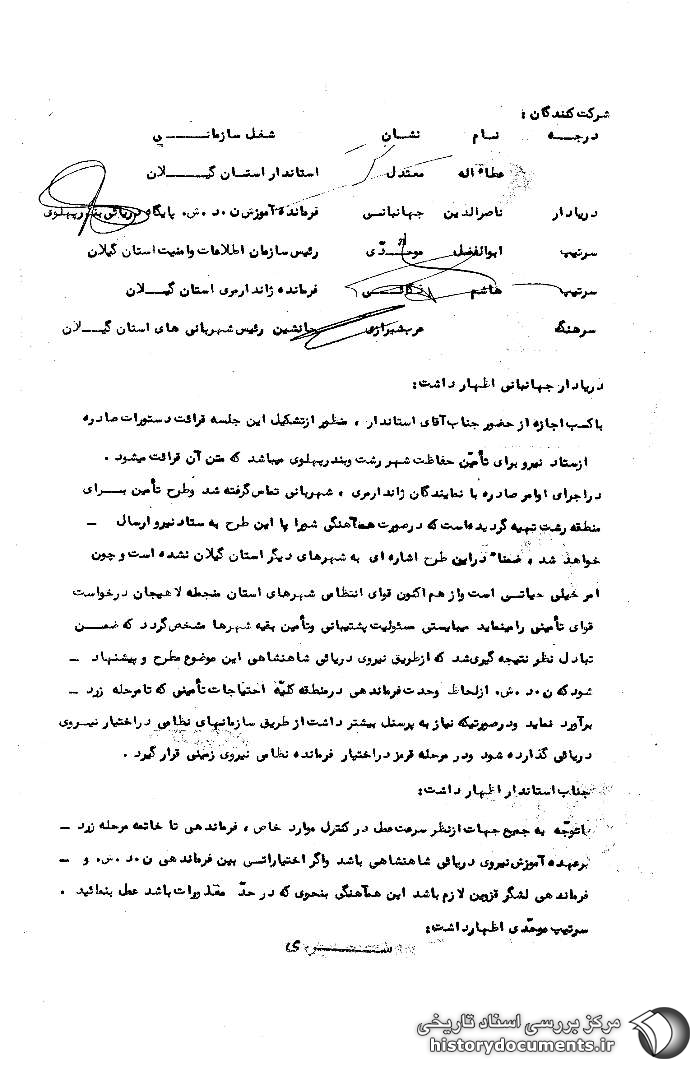 شرکت کنندگان :
درجـــه نــام نشــان شغل سازمانــــــی
عطاء اله معتدل استاندار استــان گیـــلان
دریادار ناصرالدین جهانبانــی فرمانده آموزش ن.د.ش. پایگاه دریائی بندرپهلوی
سرتیپ ابوالفضل موحــدّی رئیس سازمان اطلاعات وامنیت استان گیلان
سرتیپ هاشم فرمانده ژاندارمری استان گیــلان
سرهنگ عربشیرازی جانشین رئیس شهربانی های استان گیـــلان
دریادار جهانبانی اظهار داشت:
باکسب اجازه از حضور جناب آقای استاندار ، منظور ازتشکیل این جلسه قرائت دستورات صادره
ازستاد نیرو برای تأمین حفاظت شهر رشت وبندرپهلوی میباشد که متن آن قرائت میشود .
دراجرای اوامر صادره با نمایندگان ژاندارمری ، شهربانی تماس گرفته شد وطرح تأمین بــرای
منطقه رشت تهیه گردیده است که درصورت هماهنگی شورا با این طرح به ستاد نیرو ارسال ـ
خواهد شد ، ضمناً دراین طرح اشاره ای به شهرهای دیگر استان گیلان نشده است و چون
امر خیلی حیاتـی است واز هم اکنون قوای انتظامی شهرهای استان منجمله لاهیجان درخواست
قوای تأمینی رامینماید میبایستی مسئولیت پشتیبانی وتأمین بقیه شهرها مشخص گردد که ضمـــن
تبادل نظر نتیجه گیری شد که ازطریق نیروی دریائی شاهنشاهی این موضوع مطرح و پیشنهاد ـ
شود که ن.د.ش. ازلحاظ وحدت فرماندهی درمنطقه کلیّه احتیاجات تأمینی که تا مرحله زرد ـ
برآورد نماید ودرصورتیکه نیاز به پرسنل بیشتر داشت از طریق سازمانهای نظامی دراختیار نیــروی
دریائی گذارده شود ودر مرحله قرمز دراختیار فرمانده نظامی نیروی زمینی قرار گیرد .
جناب استاندار اظهار داشت:
باتوجّه به جمیع جهات ازنظر سرعت عمل در کنترل موارد خاص ، فرماندهی تا خاتمه مرحله زرد ـ
برعهده آموزش نیروی دریائی شاهنشاهی باشد واگر اختیاراتی بین فرماندهی ن.د.ش. و ـ
فرماندهی لشگر قزوین لازم باشد این هماهنگی بنحوی که در حدّ مقدورات باشد عمل بنمائید .
سرتیپ موحّدی اظهارداشت:
مرکز بررسی اسناد تاریخی
historydocuments.ir